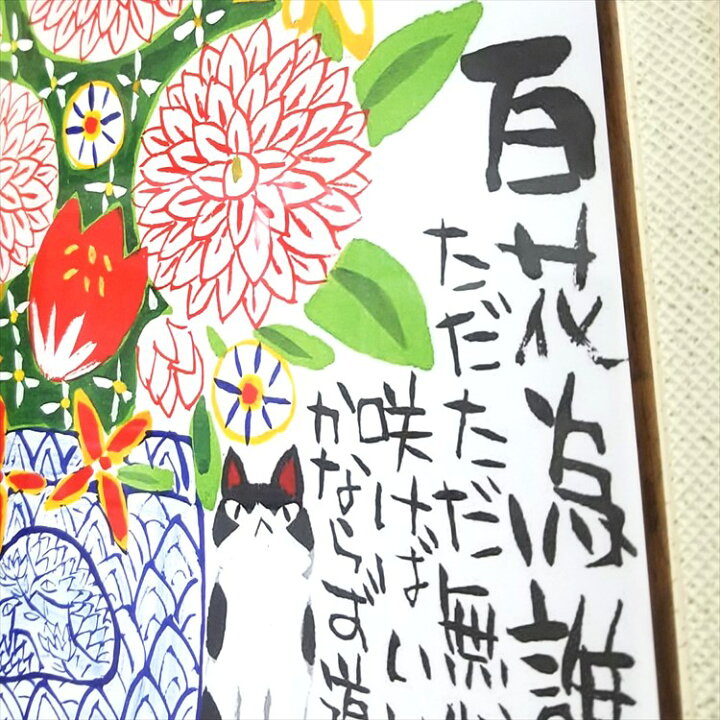 百花為誰
ただただ無
咲けばいい
かならず道